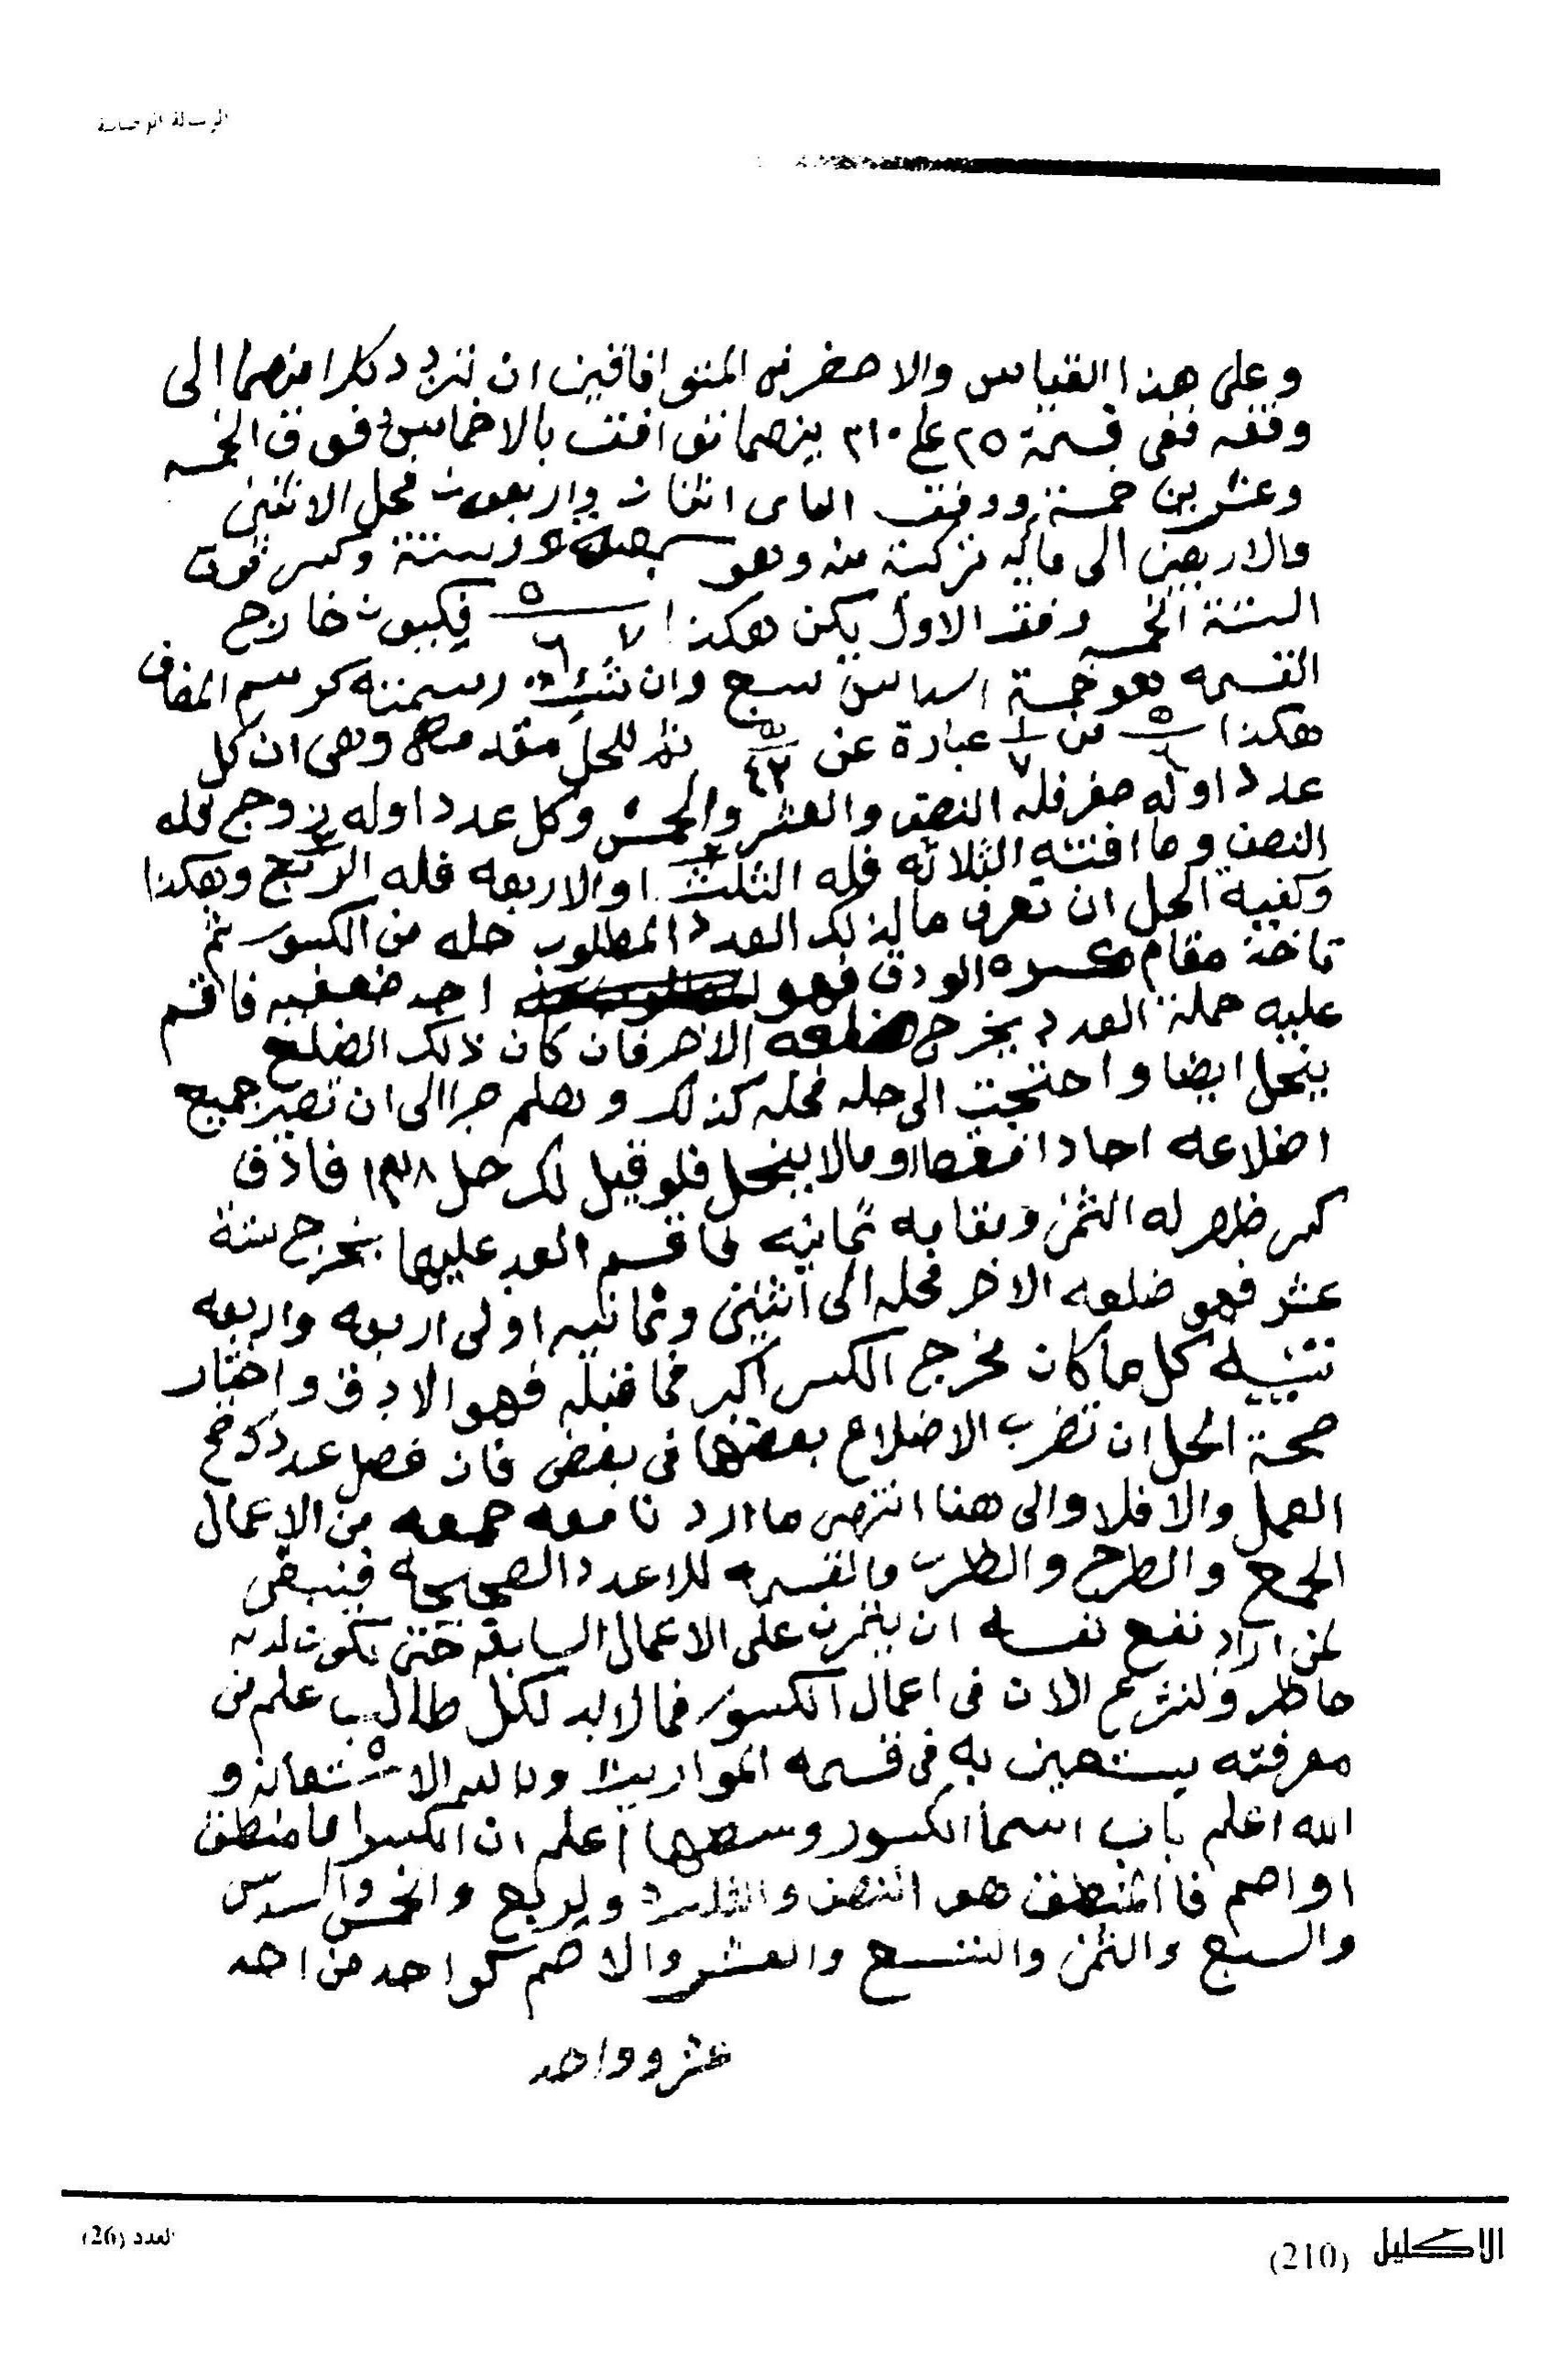 الرسالة الرحمانية
وعلى هذا القياس والاحضر فى المتوافاقين ان ترد كلا منهما الى
وفقه ففى قسمة ٢٥ على ٢١٠ بينهما توافقت بالاخماس فوفق الخمسه
وعشرين خمسة ووفق الثانى اثنان واربعون فحل الاثنين
والاربعين الى ما له تركبة منه وهو سبعة وستة وكسر فوق
الستة الخمسه وفق الاول يكن هكذا ٥ ٦ ٧ فيكون خارج
القسمه هو خمسة اسداس سبع وان شئت رسمته كرسم المضاف
هكذا ٥/٦ من ١/٧ عبارة عن ٥/٤٢ ثم للحل مقدمه وهى ان كل
عدد اوله صفر فله النصف والعشر والخمس وكل عدد اوله زوج فله
النصف وما افنته الثلاثه فله الثلث او الاربعه فله الربع وهكذا
وكفية الحل ان تعرف ما لذلك العدد المطلوب حله من الكسور ثم
تاخذ مقام كسره الودق فهو احد ضعفيه فاقسم
عليه جملة العدد يخرج ضلعه الاخر فان كان ذلك الضلع
ينحل ايضا واحتجت الى حله فحله كذلك وهلم جرا الى ان تصير جميع
اضلاعه احادا فقط او مالا ينحل فلو قيل لك حل ١٢٨ فاذق
كسر ظهر له الثمن ومقامه ثمانيه فاقسم العدد عليها يخرج ستة
عشر فهو ضلعه الاخر فحله الى اثنين وثمانيه او لى اربعه واربعه
تنبيه كل ما كان مخرج الكسر اكبر مما قبله فهو الادق واختبار
صحة الحل ان تضرب الاضلاع بعضها فى بعض فان حصل عددك صح
العمل والا فلا والى هنا انتهى ما اردنا معه جمعه من الاعمال
الجمع والطرح والظرب والقسمه للاعدد الصحيحة فينبغى
لمن اراد نفع نفسه ان يتمرن على الاعمال السابقه حتى تكون لديه
حاظر ولنشرع الان فى اعمال الكسور فما لا بد لكل طالب علم من
معرفته يستعين به فى قسمه المواريث وبالله الاستعانه و
الله اعلم باب اسما الكسور وبسطها اعلم ان الكسر اما منطق
او اصم فا المنطق هو النصف والثلث ولربع والخمس والسدس
والسبع والثمن والتسع والعشر والاصم كواحد من احد
عشر وواحد
الاكليل (210)
العدد (26)